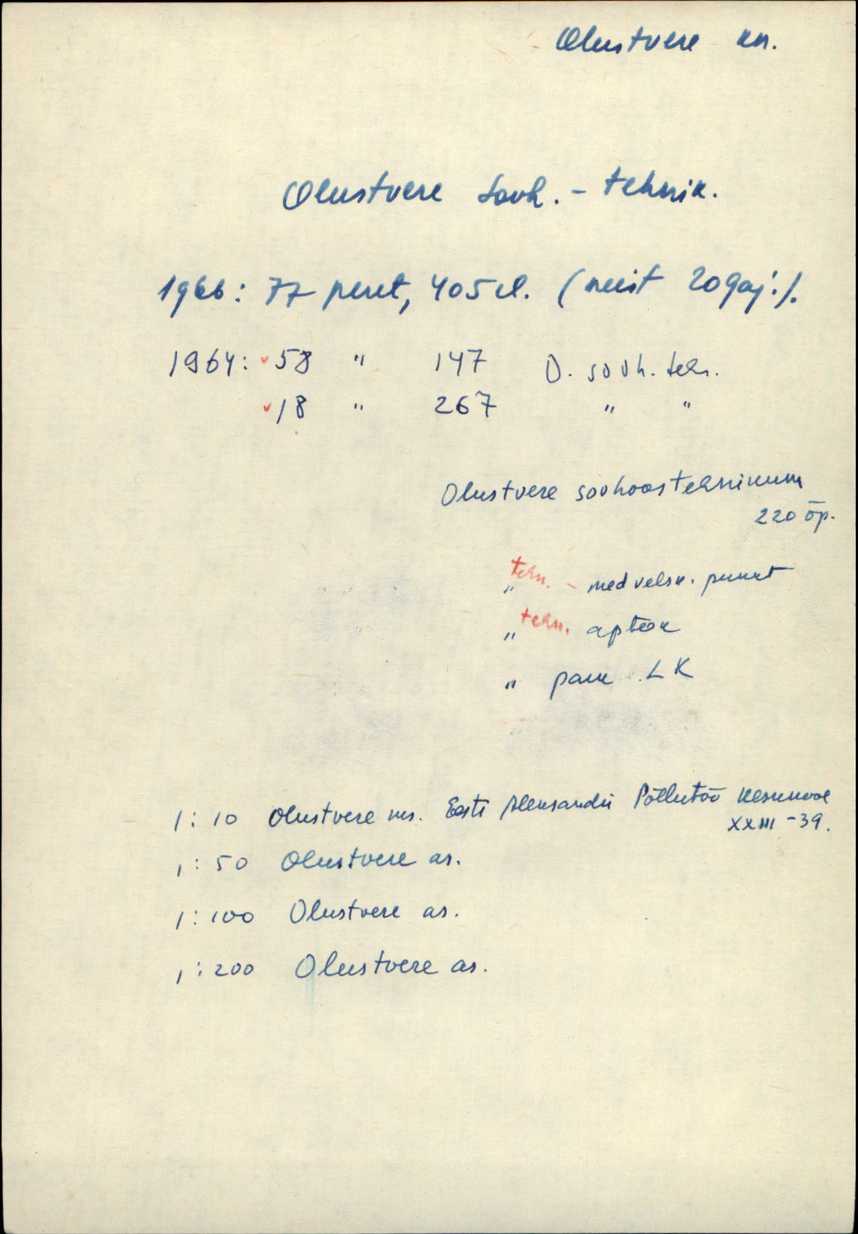 Olustvere kn.
Olustvere sovh. - tehnik.
1966: 77 peret, 405 el. (neist 209 aj.).
1964: ✓58 " 147 O. sovh. tehn.
✓18 " 267 " "
Olustvere sovhoostehnikum
220 õp.
" tehn. - med velsk. punkt
" tehn. apteek
" LK
1:10 Olustvere ms. Eesti Aleksandri Põllutöö Keskkool
XXIII - 39.
1:50 Olustvere as.
1:100 Olustvere as.
1:200 Olustvere as.